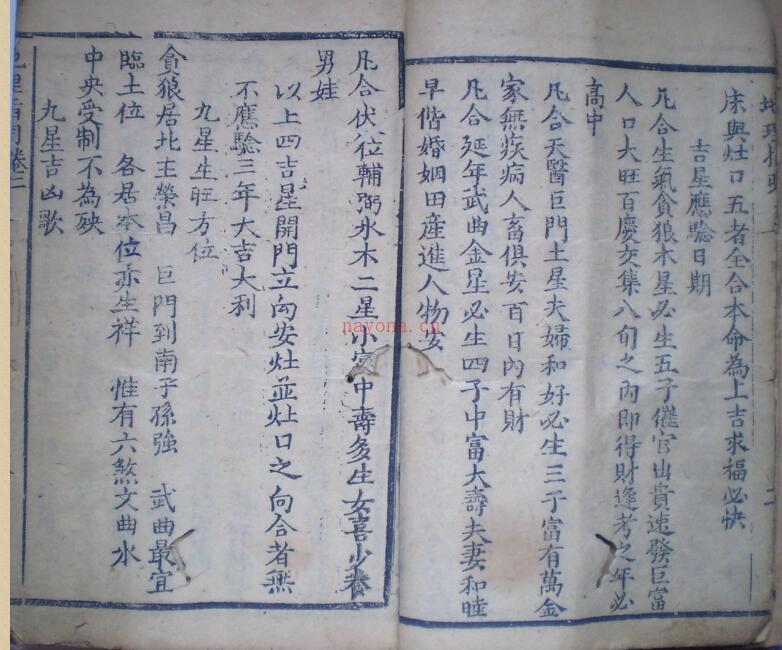 床與灶口五者全合本命為上吉求福必快
吉星應驗日期
凡合生氣貪狼木星必生五子催官出貴速發巨富
人口大旺百慶交集八旬之內即得財逢考之年必
高中
凡合天醫巨門土星夫婦和好必生三子富有萬金
家無疾病人畜俱安百日內有財
凡合延年武曲金星必生四子中富大壽夫妻和睦
早偕婚姻田產進人物安
凡合伏位輔弼水木二星小富中壽多生女喜少養
男娃
以上四吉星開門立向安灶並灶口之向合者無
不應驗三年大吉大利
九星生旺方位
貪狼居北主榮昌 巨門到南子孫強 武曲最宜
臨土位 各居本位亦生祥 惟有六煞文曲水
中央受制不為殃
九星吉凶歌
卷二
nayona.cn